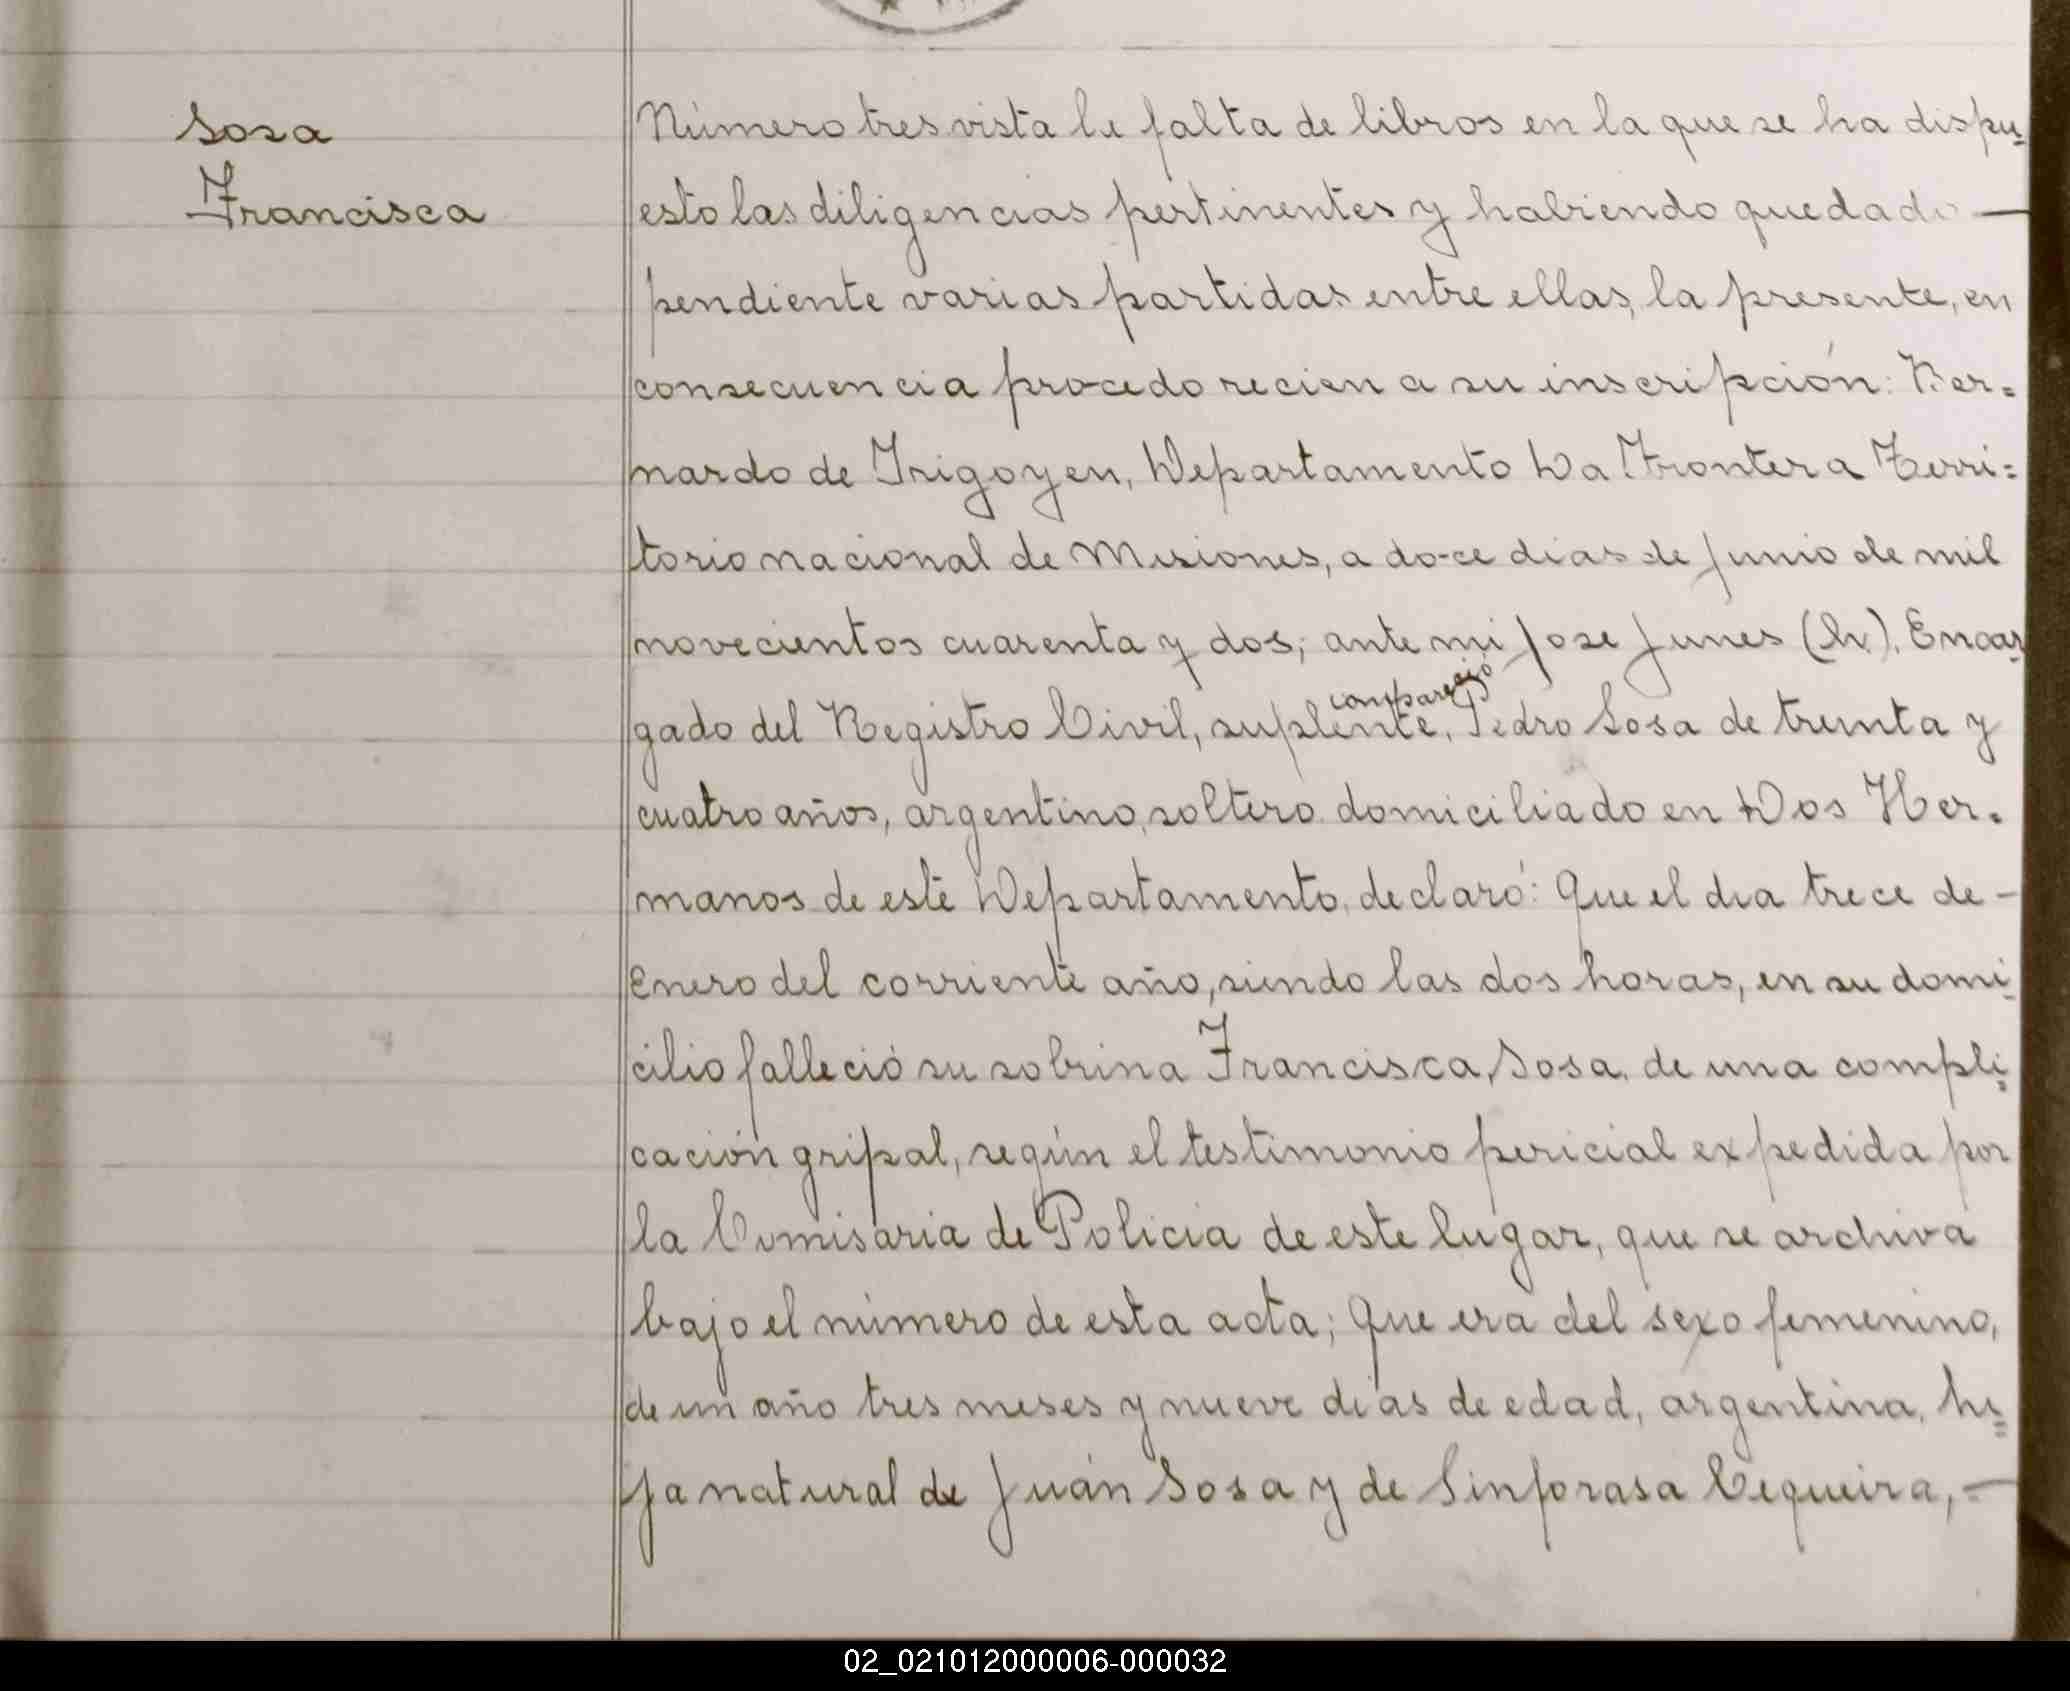 Sosa
Francisca
Número tres vista la falta de libros en la que se ha dispu=
esto las diligencias pertinentes y habiendo quedado —
pendiente varias partidas entre ellas, la presente, en
consecuencia procedo recien a su inscripción: Ber=
nardo de Irigoyen, Departamento La Frontera Terri=
torio nacional de Misiones, a doce dias de Junio de mil
novecientos cuarenta y dos; ante mi Jose Junes (h). Encar=
gado del Registro Civil, suplente, compareció Pedro Sosa de treinta y
cuatro años, argentino, soltero domiciliado en Dos Her=
manos de este Departamento, declaró: Que el dia trece de —
Enero del corriente año, siendo las dos horas, en su domi=
cilio falleció su sobrina Francisca Sosa, de una compli=
cación gripal, según el testimonio pericial expedida por
la Comisaria de Policia de este lugar, que se archiva
bajo el número de esta acta; Que era del sexo femenino,
de un año tres meses y nueve dias de edad, argentina, hi=
ja natural de Juán Sosa y de Sinforasa Cequeira, —
02_021012000006-000032